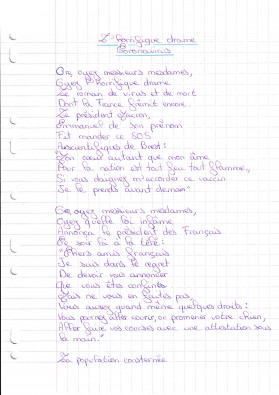 L'horrifique drame
Coronavirus
Ore oyez messieurs mesdames,
Oyez l'horrifique drame
Le roman de virus et de mort
Dont la France frémit encore.
Le président Macron,
Emmanuel de son prénom
Fit mander ce SOS
Aux scientifiques de Brest :
"Mon cœur autant que mon âme
Pour la nation est tout feu tout flamme,
Si vous daignez m'accorder ce vaccin
Je le prends avant demain."
Ore oyez messieurs mesdames,
Oyez quelle loi infâme
Annonça le président des Français
Le soir là à la télé :
"Chers amis français
Je suis dans le regret
De devoir vous annoncer
Que vous êtes confinés
Mais ne vous en faites pas,
Vous aurez quand même quelques droits :
Vous pourrez aller courir, ou promener votre chien,
Aller faire vos courses avec une attestation sous
la main."
La population consternée